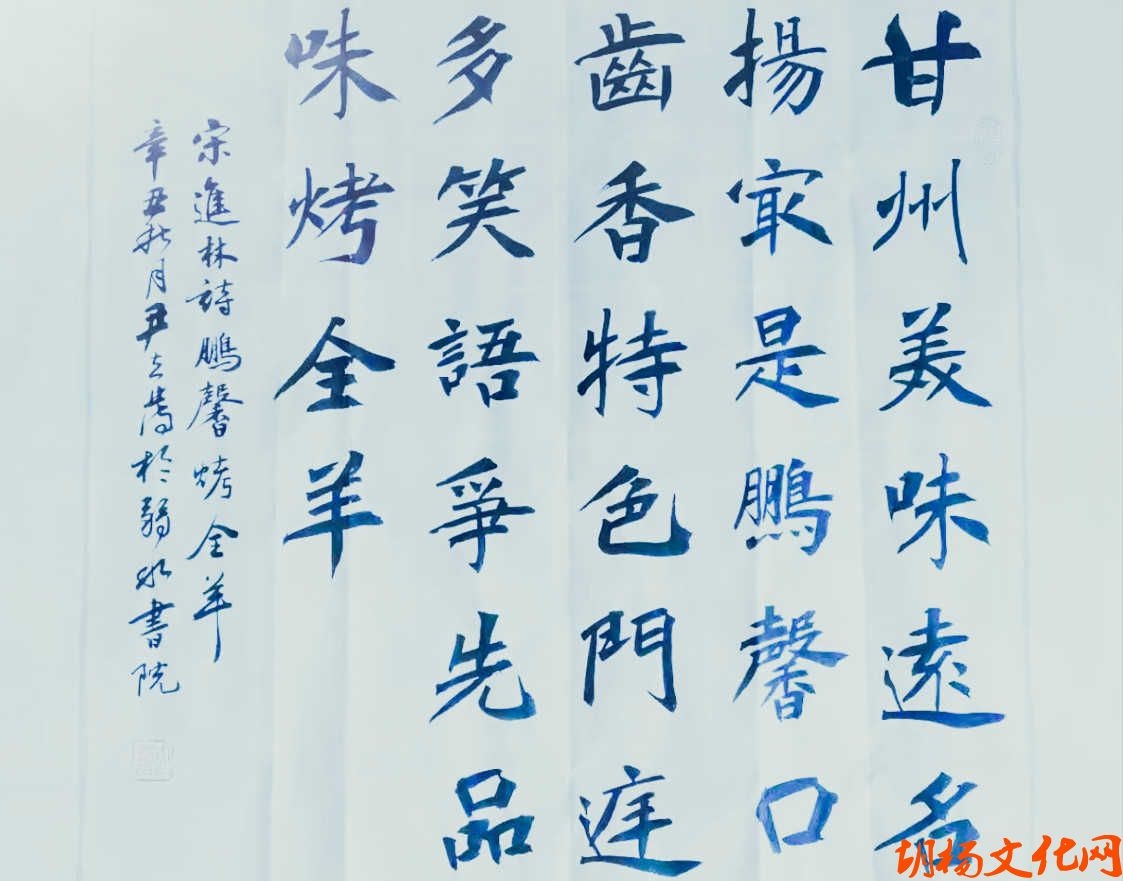 甘州美味遠名
揚冣是鵬馨口
齒香特色門庭
多笑語爭先品
味烤全羊
宋進林詩鵬馨烤全羊
辛丑秋月尹立於弱水書院
胡杨文化网